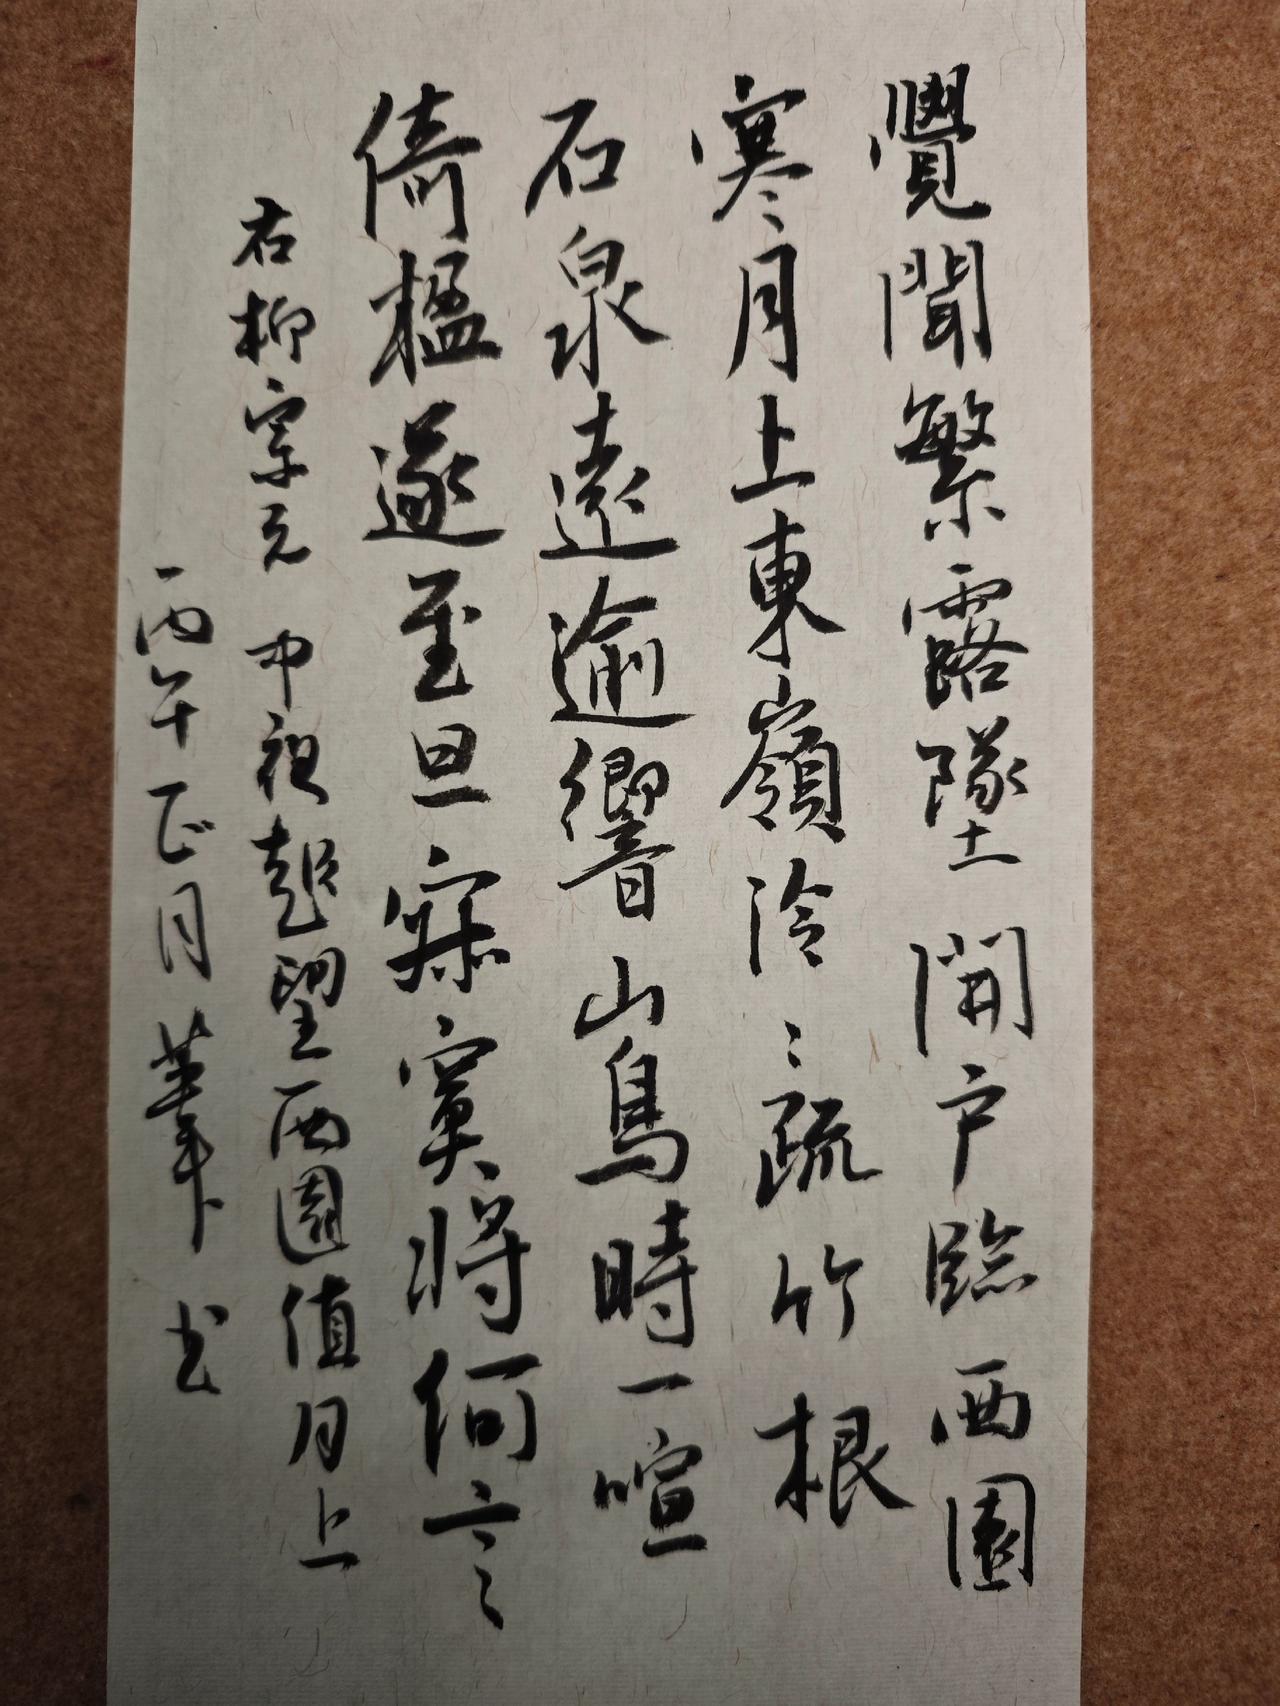 覺聞繁露墜開戶臨西園
寒月上東嶺泠〻疏竹根
石泉遠逾響山鳥時一喧
倚楹遂至旦寂寞將何言
右柳宗元中夜起望西園值月上
丙午正月筆書